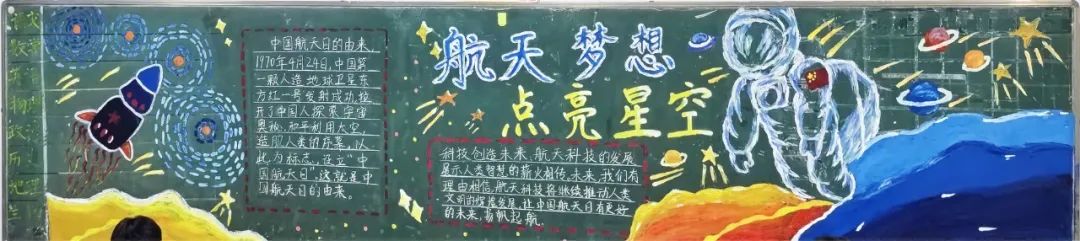 语文
数学
英
物理
政
历
地理
生
中国航天日的由来,
1970年4月24日,中国第
一颗人造地球卫星东
方红一号发射成功,拉
开了中国人探索宇宙
奥秘、和平利用太空、
造服人类的序幕,以
此,为标志,设立"中
国航天日",这就是中
国航天日的由来。
航天梦想
点亮星空
科技创造未来,航天科技的发展
显示人类智慧的薪火相传,未来,我们有
理由相信,航天科技将继续推动人类
文明的 发展,让中国航天日有更好
的未来,扬帆起航.